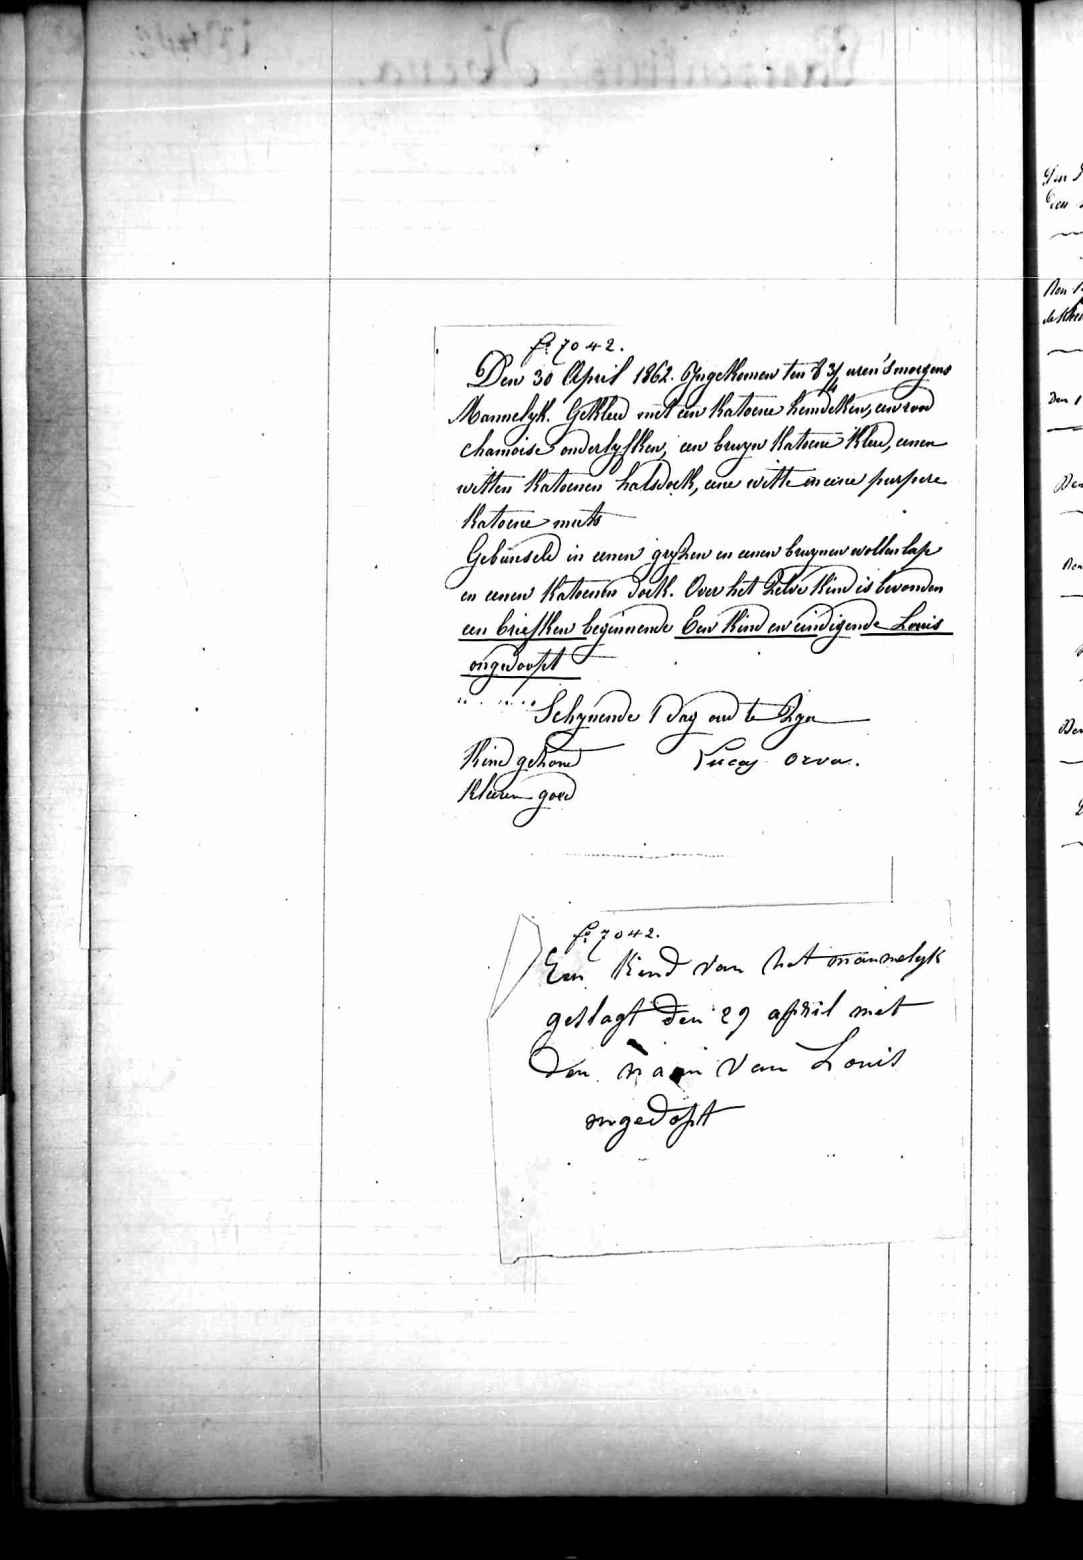 fo 7042.
Den 30 April 1862. Ingekomen ten 8 3/4 uren 's morgens
Mannelyk. Gekleed met een katoene hemdeken, een rood
chamoise onderlyfken, een bruyn katoene kleed, eenen
witten katoenen halsdoek, eene witte en eene purpere
katoene muts
Gebunseld in eenen gryzen en eenen bruynen wollen lap
en eenen katoenen doek. Over het zelve kind is bevonden
een briefken beginnende Een kind en eindigende Louis
ongedoopt
Schynende 1 dag oud te zyn
Kind gezond Lucas Orva.
Kleeren goed
fo 7042.
Een Kind van het mannelyk
geslagt den 29 april met
den naam van Louis
ongedopt